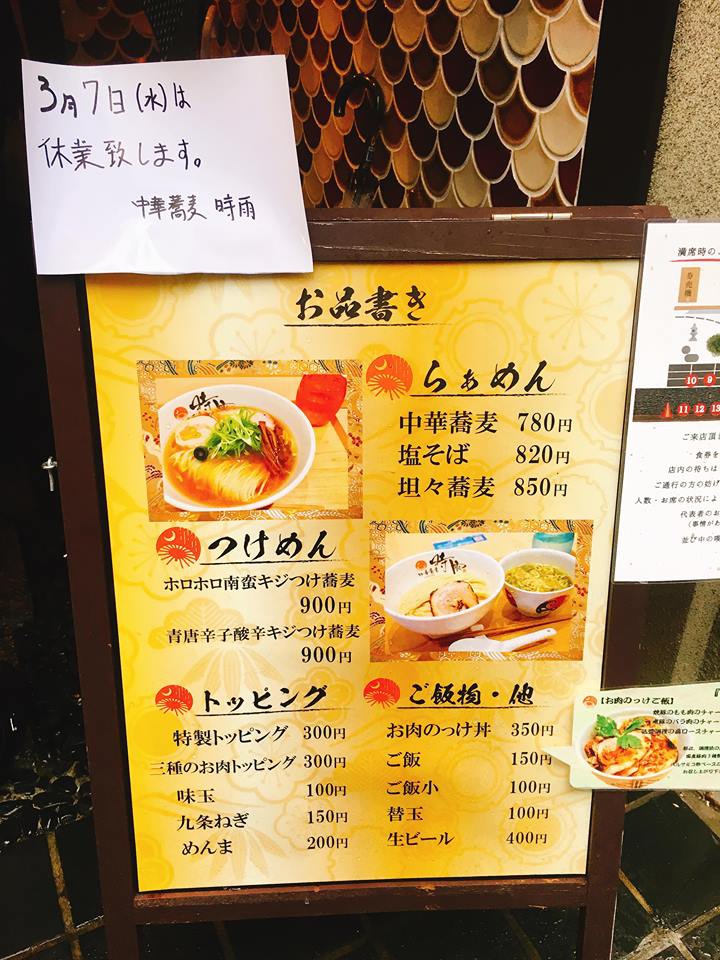 3月7日(水)は
休業致します。
中華蕎麦 時雨
お品書き
らぁめん
中華蕎麦 780円
塩そば 820円
坦々蕎麦 850円
つけめん
ホロホロ南蛮キジつけ蕎麦
900円
青唐辛子酸辛キジつけ蕎麦
900円
トッピング
特製トッピング 300円
三種のお肉トッピング 300円
味玉 100円
九条ねぎ 150円
めんま 200円
ご飯物・他
お肉のっけ丼 350円
ご飯 150円
ご飯小 100円
替玉 100円
生ビール 400円
満席時の
券売機
10 9
11 12 13
ご来店頂
食券を
店内の待ちは
ご通行の方の妨げ
人数・お席の状況によ
代表者のお
(事情があ
並び中の喫
【お肉のっけご飯】